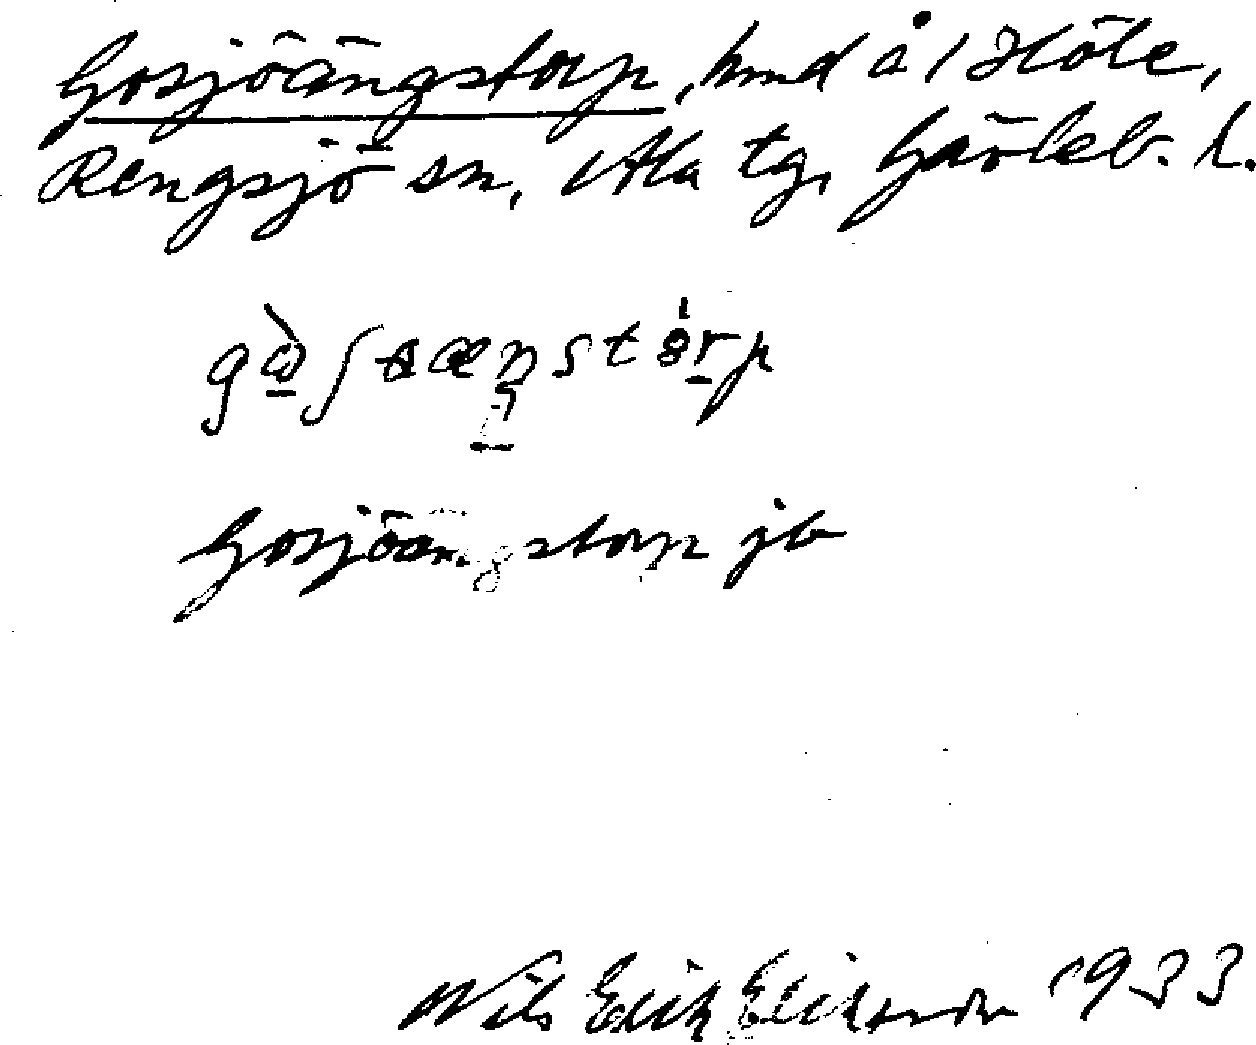 Gosjöängstorp, hmd å 1 Höle,
Rengsjö sn, Ala tg, Gävleb. l.
Gosjöängstorp jb
Nils Erik Eriksson 1933